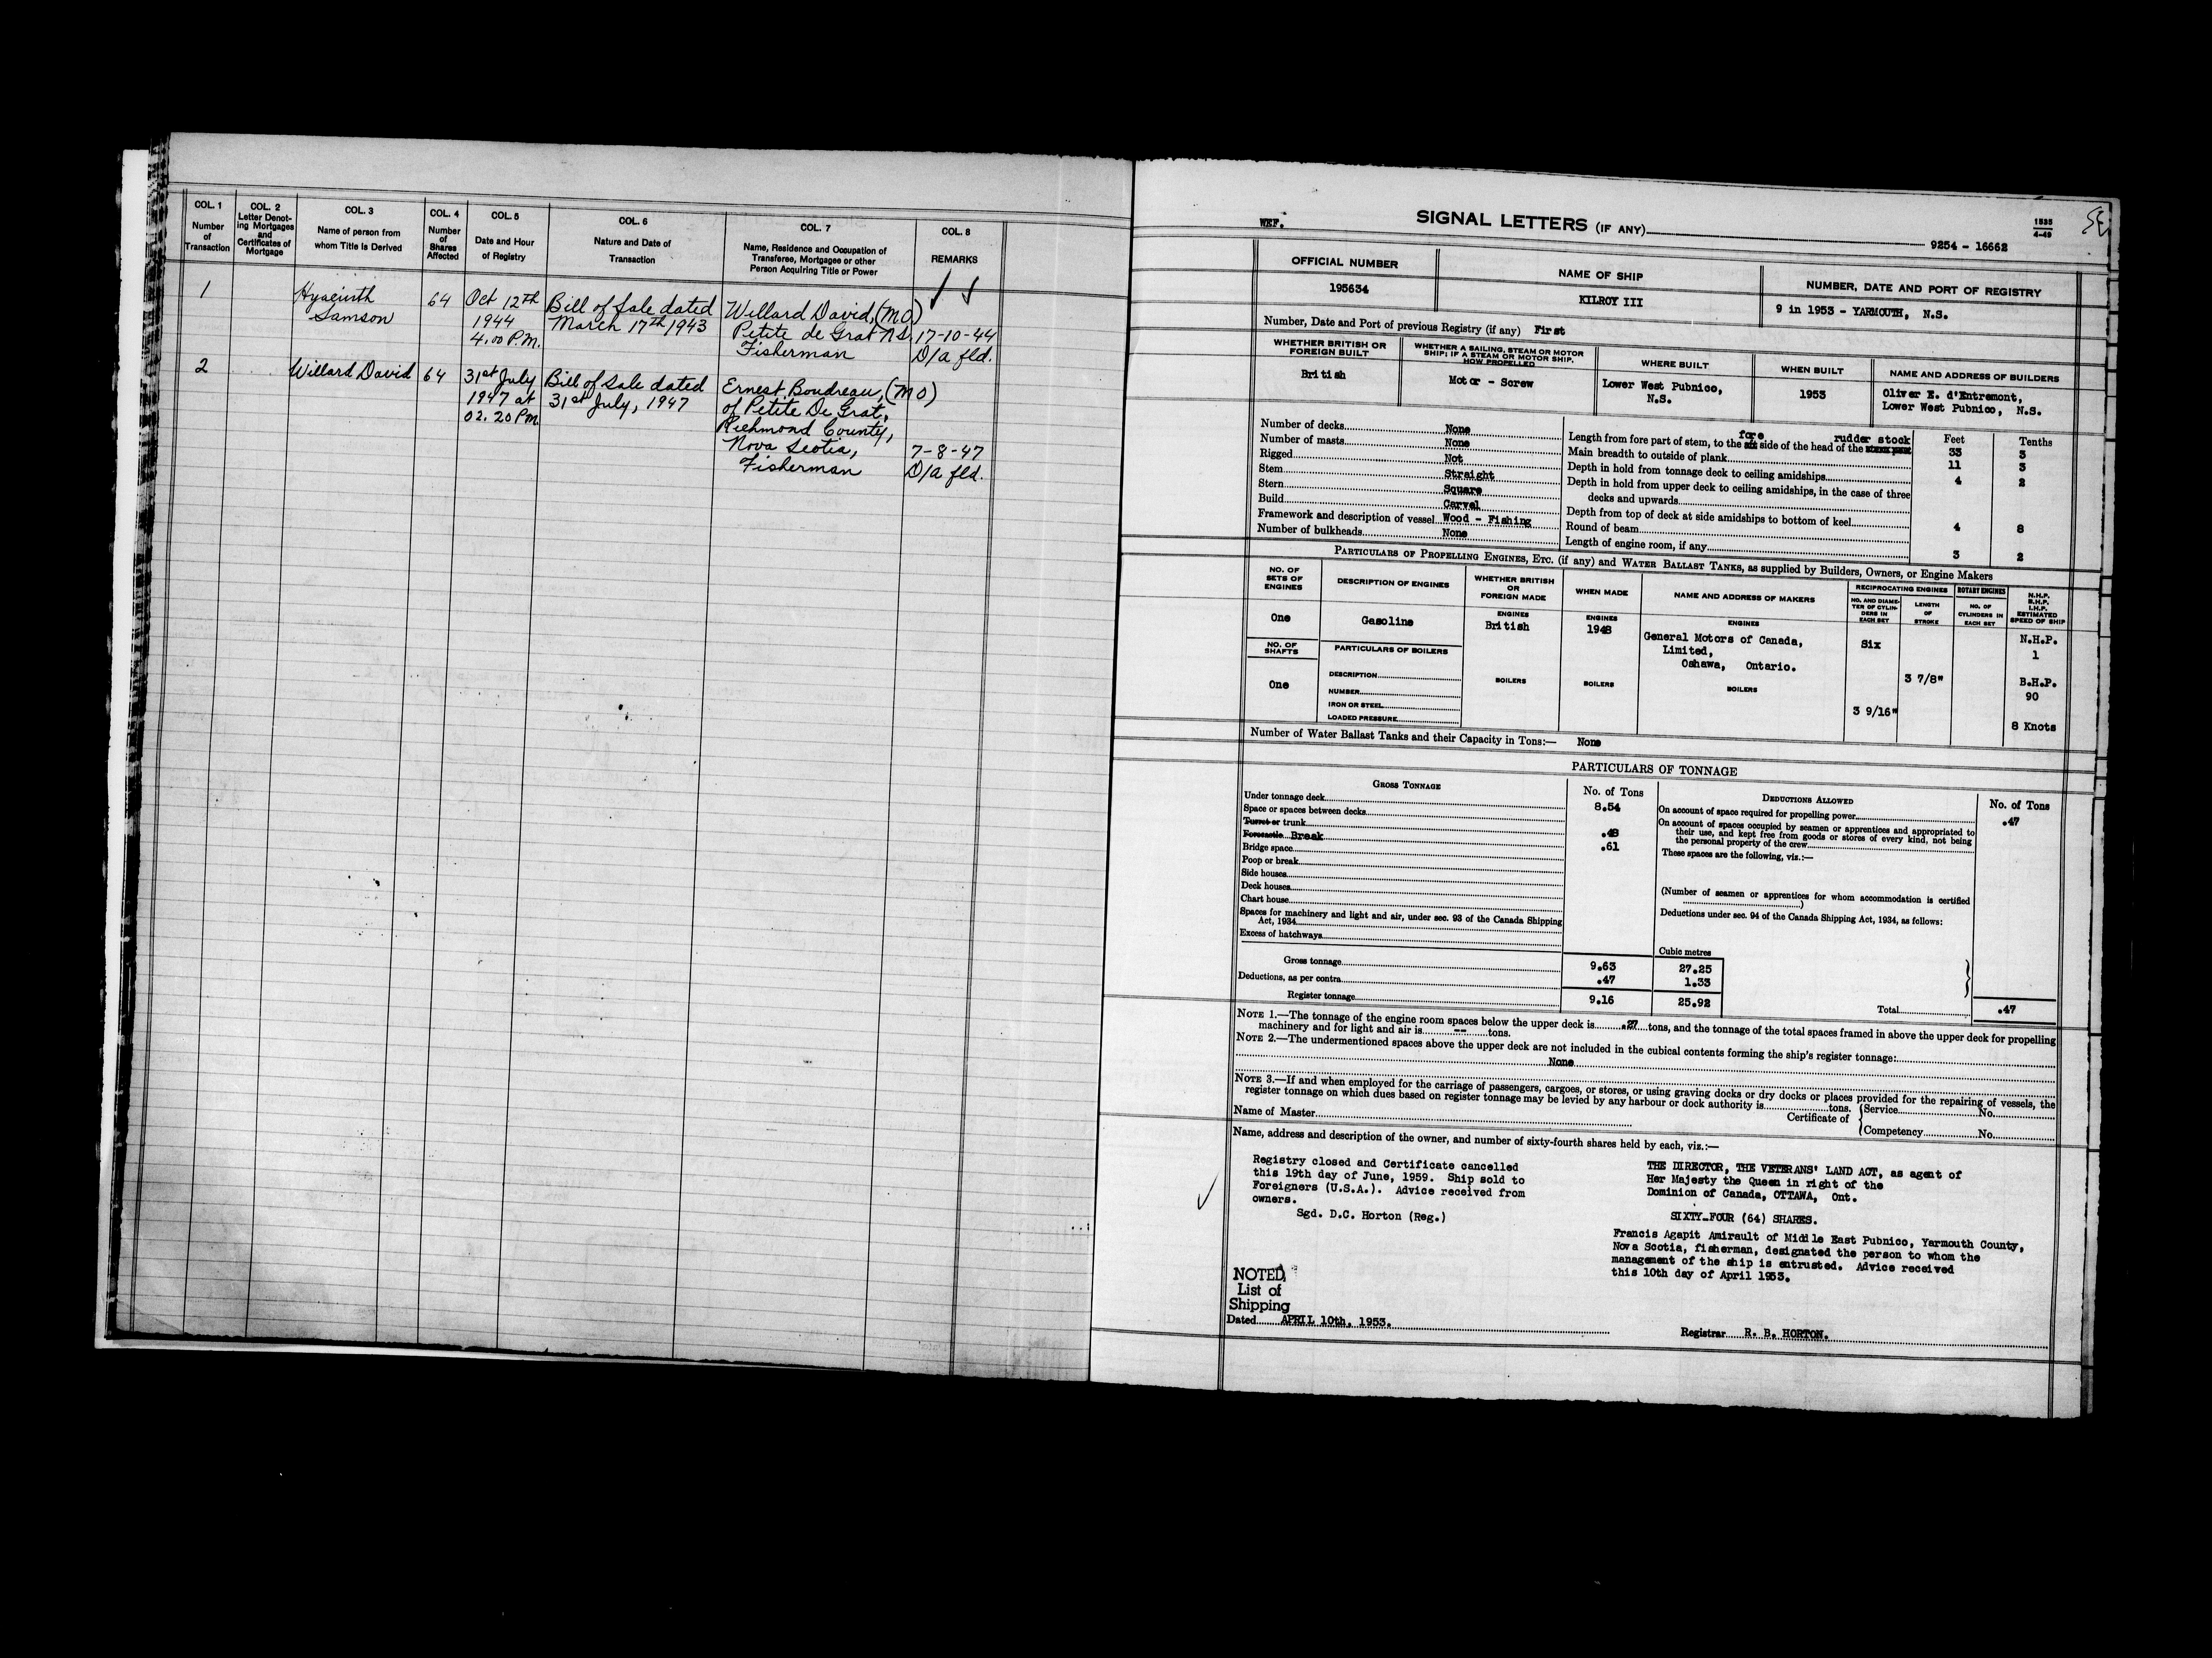 COL. 1 COL. 2 COL. 3 COL. 4 COL. 5 COL. 6 COL. 7 COL. 8
Number of Transaction
Letter Denoting Mortgages and Certificates of Mortgage
Name of person from whom Title is Derived
Number of Shares Affected
Date and Hour of Registry
Nature and Date of Transaction
Name, Residence and Occupation of Transferee, Mortgagee or other Person Acquiring Title or Power
REMARKS
1 Hyacinth 64 Oct 12th Bill of Sale dated Willard David, (MO)
Samson 1944 March 17th 1943 Petite de Grat N.S. 17-10-44
4.00 P.M. Fisherman D/a fld.
2 Willard David 64 31st July Bill of Sale dated Ernest Boudreau, (MO)
1947 at 31st July, 1947 of Petite De Grat,
02.20 PM. Richmond County,
Nova Scotia, 7-8-47
Fisherman D/a fld.
WEF. SIGNAL LETTERS (IF ANY) 9254 - 16662
1535
4-49
OFFICIAL NUMBER NAME OF SHIP NUMBER, DATE AND PORT OF REGISTRY
195634 KILROY III 9 in 1953 - YARMOUTH, N.S.
Number, Date and Port of previous Registry (if any) First
WHETHER BRITISH OR FOREIGN BUILT
WHETHER A SAILING, STEAM OR MOTOR SHIP; IF A STEAM OR MOTOR SHIP, HOW PROPELLED
WHERE BUILT WHEN BUILT NAME AND ADDRESS OF BUILDERS
British Motor - Screw Lower West Pubnico, N.S. 1953 Oliver E. d'Entremont, Lower West Pubnico, N.S.
Number of decks None
Number of masts None
Rigged Not
Stem Straight
Stern Square
Build Carvel
Framework and description of vessel Wood - Fishing
Number of bulkheads None
Feet Tenths
fore rudder stock
Length from fore part of stem, to the aft side of the head of the stern post 33 3
Main breadth to outside of plank 11 3
Depth in hold from tonnage deck to ceiling amidships 4 2
Depth in hold from upper deck to ceiling amidships, in the case of three decks and upwards
Depth from top of deck at side amidships to bottom of keel 4 8
Round of beam
Length of engine room, if any 3 2
PARTICULARS OF PROPELLING ENGINES, ETC. (if any) and WATER BALLAST TANKS, as supplied by Builders, Owners, or Engine Makers
NO. OF SETS OF ENGINES
DESCRIPTION OF ENGINES
WHETHER BRITISH OR FOREIGN MADE
WHEN MADE
NAME AND ADDRESS OF MAKERS
RECIPROCATING ENGINES ROTARY ENGINES
NO. AND DIAMETER OF CYLINDERS IN EACH SET
LENGTH OF STROKE
NO. OF CYLINDERS IN EACH SET
N.H.P. B.H.P. I.H.P. ESTIMATED SPEED OF SHIP
ENGINES ENGINES ENGINES
One Gasoline British 1948 General Motors of Canada, Limited, Oshawa, Ontario. Six N.H.P. 1
NO. OF SHAFTS PARTICULARS OF BOILERS
One
DESCRIPTION BOILERS BOILERS BOILERS 3 7/8" B.H.P.
NUMBER 90
IRON OR STEEL 3 9/16"
LOADED PRESSURE 8 Knots
Number of Water Ballast Tanks and their Capacity in Tons:— None
PARTICULARS OF TONNAGE
GROSS TONNAGE No. of Tons DEDUCTIONS ALLOWED No. of Tons
Under tonnage deck 8.54
Space or spaces between decks
Turret or trunk .48
Forecastle Break .61
Bridge space
Poop or break
Side houses
Deck houses
Chart house
Spaces for machinery and light and air, under sec. 93 of the Canada Shipping Act, 1934
Excess of hatchways
On account of space required for propelling power .47
On account of spaces occupied by seamen or apprentices and appropriated to
their use, and kept free from goods or stores of every kind, not being
the personal property of the crew
These spaces are the following, viz.:—
(Number of seamen or apprentices for whom accommodation is certified )
Deductions under sec. 94 of the Canada Shipping Act, 1934, as follows:
Cubic metres
Gross tonnage 9.63 27.25
Deductions, as per contra .47 1.33
Register tonnage 9.16 25.92 Total .47
NOTE 1.—The tonnage of the engine room spaces below the upper deck is .27 tons, and the tonnage of the total spaces framed in above the upper deck for propelling
machinery and for light and air is -- tons.
NOTE 2.—The undermentioned spaces above the upper deck are not included in the cubical contents forming the ship's register tonnage:
None
NOTE 3.—If and when employed for the carriage of passengers, cargoes, or stores, or using graving docks or dry docks or places provided for the repairing of vessels, the
register tonnage on which dues based on register tonnage may be levied by any harbour or dock authority is tons.
Name of Master Certificate of Service No.
Competency No.
Name, address and description of the owner, and number of sixty-fourth shares held by each, viz.:—
Registry closed and Certificate cancelled
this 19th day of June, 1959. Ship sold to
Foreigners (U.S.A.). Advice received from
owners.
Sgd. D.C. Horton (Reg.)
THE DIRECTOR, THE VETERANS' LAND ACT, as agent of
Her Majesty the Queen in right of the
Dominion of Canada, OTTAWA, Ont.
SIXTY-FOUR (64) SHARES.
Francis Agapit Amirault of Middle East Pubnico, Yarmouth County,
Nova Scotia, fisherman, designated the person to whom the
management of the ship is entrusted. Advice received
this 10th day of April 1953.
NOTED
List of
Shipping
Dated APRIL 10th, 1953.
Registrar R. B. HORTON.